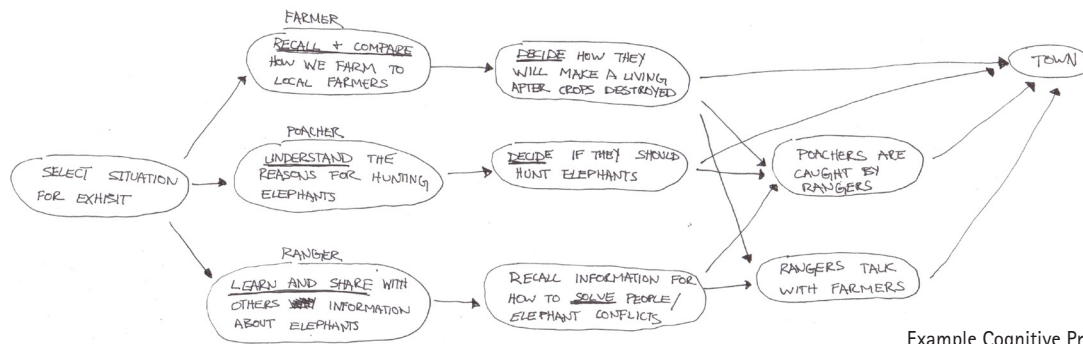 FARMER
RECALL + COMPARE
HOW WE FARM TO
LOCAL FARMERS
DECIDE HOW THEY
WILL MAKE A LIVING
AFTER CROPS DESTROYED
TOWN
POACHER
UNDERSTAND THE
REASONS FOR HUNTING
ELEPHANTS
DECIDE IF THEY SHOULD
HUNT ELEPHANTS
POACHERS ARE
CAUGHT BY
RANGERS
SELECT SITUATION
FOR EXHIBIT
RANGER
LEARN AND SHARE WITH
OTHERS INFORMATION
ABOUT ELEPHANTS
RECALL INFORMATION FOR
HOW TO SOLVE PEOPLE/
ELEPHANT CONFLICTS
RANGERS TALK
WITH FARMERS
Example Cognitive Pr